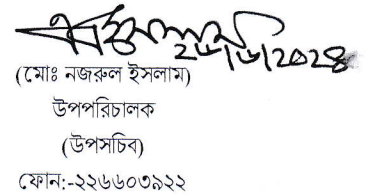 ২৬/৬/2024
(মোঃ নজরুল ইসলাম)
উপপরিচালক
(উপসচিব)
ফোন:-২২৬৬০৩৯২২